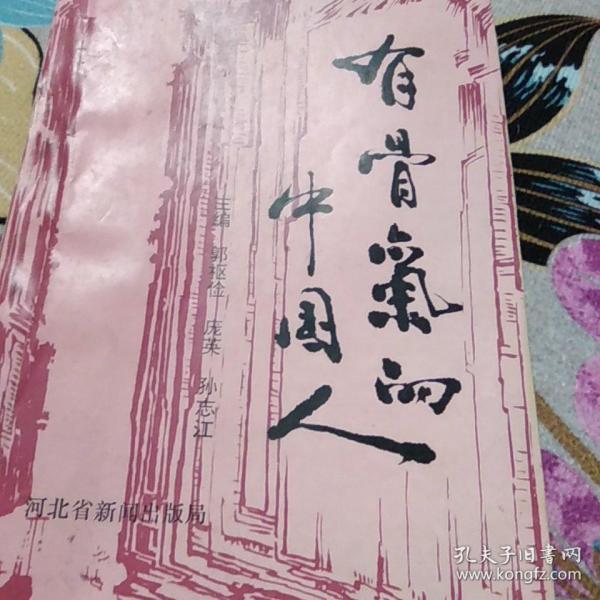 有骨氣的
中国人
主编 郭枢俭 庞英 孙志江
河北省新闻出版局
孔夫子旧书网
www.kongfz.com